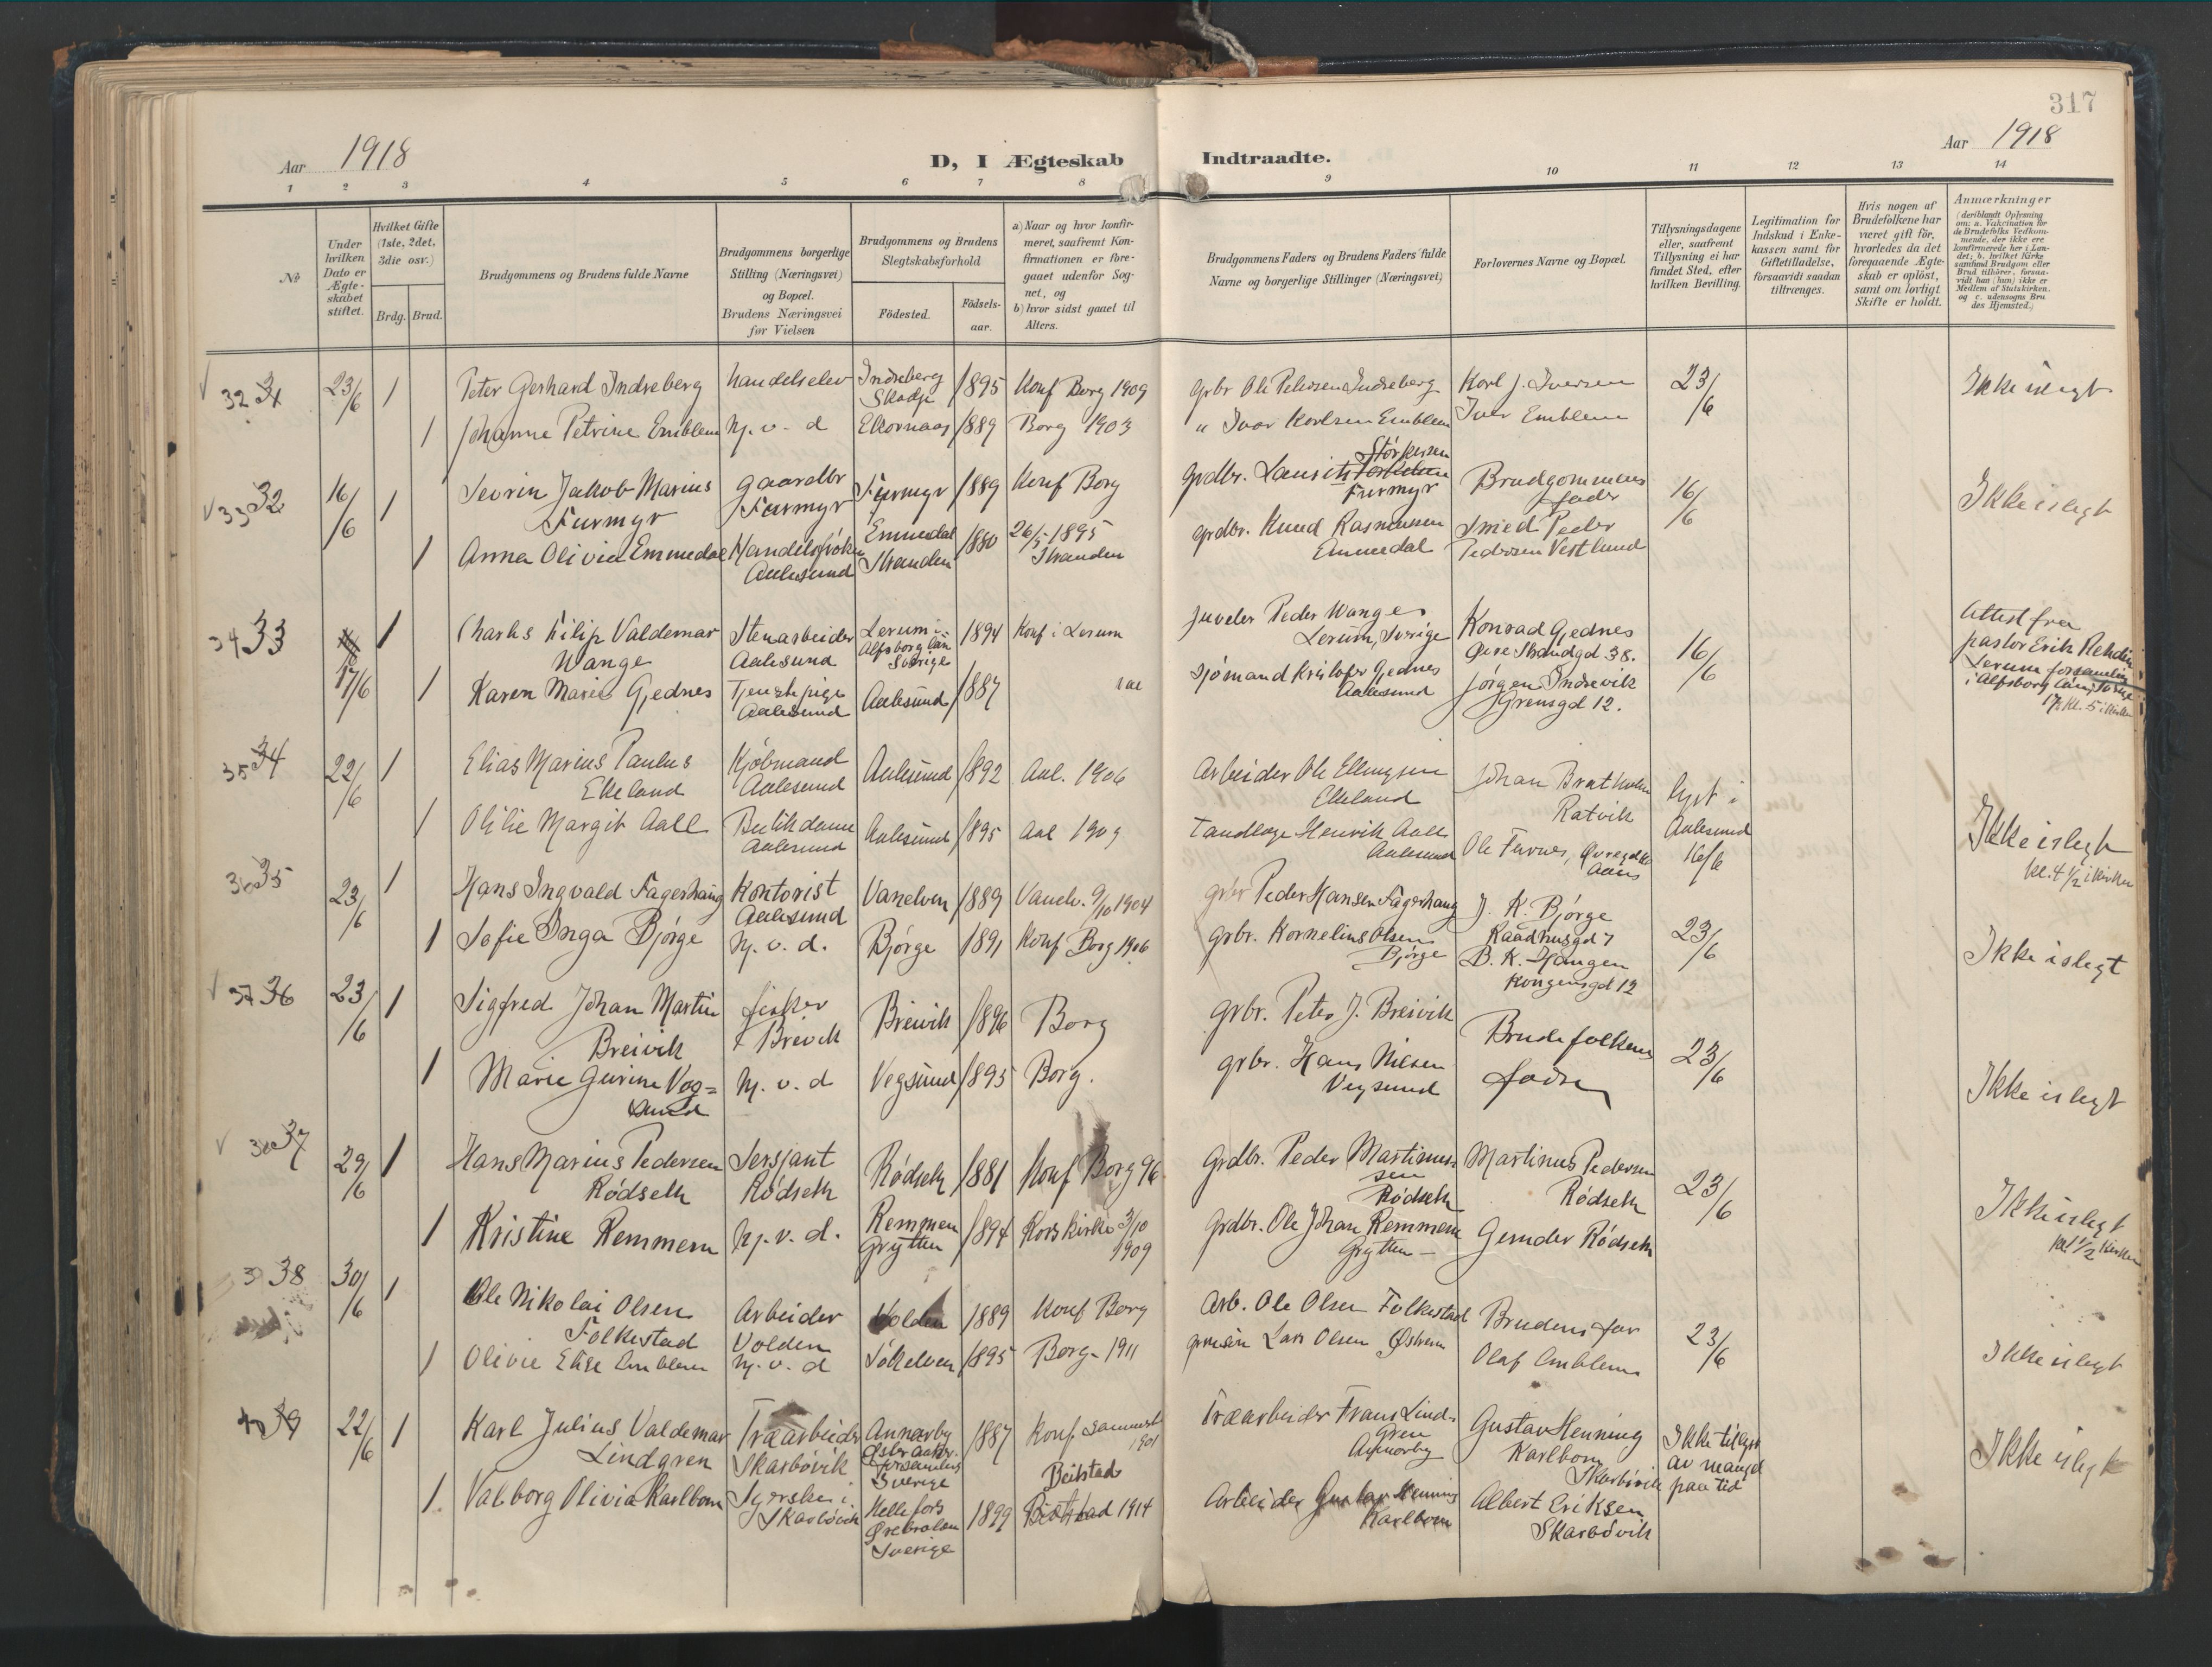 317
Aar 1918
D, I Ægteskab Indtraadte.
Aar 1918
1 2 3 4 5 6 7 8 9 10 11 12 13 14
No
Under hvilken Dato er Ægteskabet stiftet.
Hvilket Gifte (1ste, 2det, 3die osv.)
Brdg. Brud.
Brudgommens og Brudens fulde Navne
Brudgommens borgerlige Stilling (Næringsvei) og Bopæl. Brudens Næringsvei før Vielsen
Brudgommens og Brudens Slegtskabsforhold
Födested.
Födsels-aar.
a) Naar og hvor konfirmeret, saafremt Konfirmationen er foregaaet udenfor Sognet, og
b) hvor sidst gaaet til Alters.
Brudgommens Faders og Brudens Faders fulde Navne og borgerlige Stillinger (Næringsvei)
Forlovernes Navne og Bopæl.
Tillysningsdagene eller, saafremt Tillysning ei har fundet Sted, efter hvilken Bevilling.
Legitimation for Indskud i Enkekassen samt for Giftetilladelse, forsaavidt saadan tiltrænges.
Hvis nogen af Brudefolkene har været gift för, hvorledes da det foregaaende Ægteskab er oplöst, samt om lovligt Skifte er holdt.
Anmærkninger (deriblandt Oplysning om: a. Vakcination for de Brudefolks Vedkommende, der ikke ere konfirmerede her i Landet; b. hvilket Kirkesamfund Brudgom eller Brud tilhörer, forsaavidt han (hun) ikke er Medlem af Statskirken. og c. udensogns Brudes Hjemsted.)
32 31 23/6 1 Peter Gerhard Indreberg handelselev Indreberg Skodje 1895 Konf Borg 1909 grbr Ole Petersen Indreberg Karl J. Iversen 23/6 Ikke i slegt
1 Johanne Petrine Emblem hj. v. d Ekornaas 1889 Borg 1903 " Ivar Karlsen Emblem Iver Emblem
33 32 16/6 1 Sevrin Jakob Marius Furmyr gaardbr Furmyr Furmyr 1889 Konf Borg grdbr. Laurits Störkersen Furmyr Brudgommens fader 16/6 Ikke i slegt
1 Anna Olivia Emmedal Handelsfrøken Aalesund Emmedal Stranden 1880 26/5 1895 Stranden grdbr. Knud Rasmussen Emmedal Smed Peder Pedersen Vestlund
34 33 17/6 1 Charles Filip Valdemar Wange Stenarbeider Aalesund Lerum i Alfsborg län Sverige 1894 Konf i Lerum juveler Peder Wange Lerum, Sverige Konrad Gjednes Øvre Strandgd 38. 16/6 Attest fra pastor Erik Rehdin Lerum forsamling i Alfsborg län, Sverige 17/6 kl. 5 i kirken
1 Karen Marie Gjednes Tjenestepige Aalesund Aalesund 1887 sjömand Kristofer Gjednes Aalesund Jörgen Indrevik Grensgd 12.
35 34 22/6 1 Elias Marius Paulus Ekeland Kjöbmand Aalesund Aalesund 1892 Aal. 1906 Arbeider Ole Ellingsen Ekeland Johan Bratholm Ratvik lyst i Aalesund 16/6 Ikke i slegt kl. 4 1/2 i kirken
1 Olilie Margit Aall Butikdame Aalesund Aalesund 1895 Aal 1909 Tandlæge Henrik Aall Aalesund Ole Furnes,
36 35 23/6 1 Hans Ingvald Fagerhaug Kontorist Aalesund Vanelven 1889 Vanelv. 9/10 1904 grbr Peder Hansen Fagerhaug J. K. Bjørge Raadhusgd 7 23/6 Ikke i slegt
1 Sofie Inga Bjørge hj. v. d. Bjørge 1891 Konf Borg 1906 grbr. Kornelius Olsen Bjørge B. K. Haugen Kongensgd 12
37 36 23/6 1 Sigfred Johan Martin Breivik fisker Breivik Breivik 1896 Borg grbr. Peter J. Breivik Brudefolkens fædre 23/6 Ikke i slegt
1 Marie Gurine Vegsund hj. v. d Vegsund 1895 Borg. grbr. Hans Nilsen Vegsund
38 37 29/6 1 Hans Marius Pedersen Rödseth Sersjant Rödseth Rödseth 1881 Konf Borg 96 Grdbr. Peder Martinussen Rödseth Martinus Pedersen Rödseth 23/6 Ikke i slegt kl 1/2 kirken
1 Kristine Remmem hj. v. d. Remmem Grytten 1894 Kors kirke 3/10 1909 Grdbr. Ole Johan Remmem Grytten Gerhder Rödseth
39 38 30/6 1 Ole Nikolai Olsen Folkestad Arbeider Volden Volden 1889 Konf Borg Arb. Ole Olsen Folkestad Brudens far 23/6 Ikke i slegt
1 Olivie Elise Emblem hj. v. d Sökelven 1895 Borg 1911 Lars Olsen Østrem Olaf Emblem
40 39 22/6 1 Karl Julius Valdemar Lindgren Træarbeider Skarbövik Annarby Sverige 1887 Konf 1901 Træarbeider Frans Lindgren Annorby Gustav Henning Karlbom Skarbövik Ikke tillyst av mangel paa tid Ikke i slegt
1 Valborg Olivia Karlbom Syerske i Skarbövik Hellefors Ørebrolän Sverige 1899 Beitstad 1914 Arbeider Gustav Henning Karlbom Albert Eriksen Skarbövik